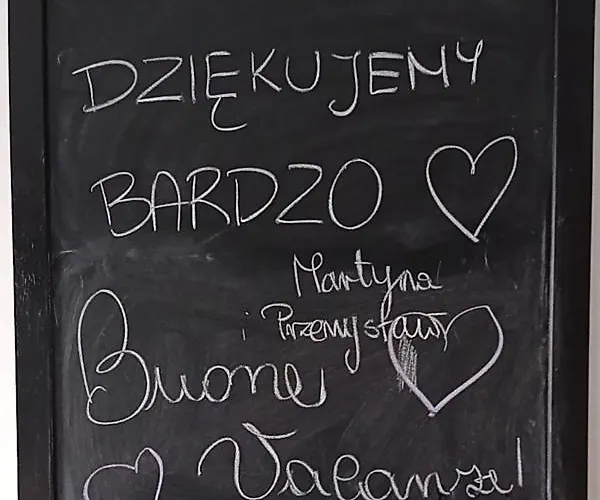 DZIĘKUJEMY
BARDZO
Martyna
i Przemysław
Buone
Vacanze!